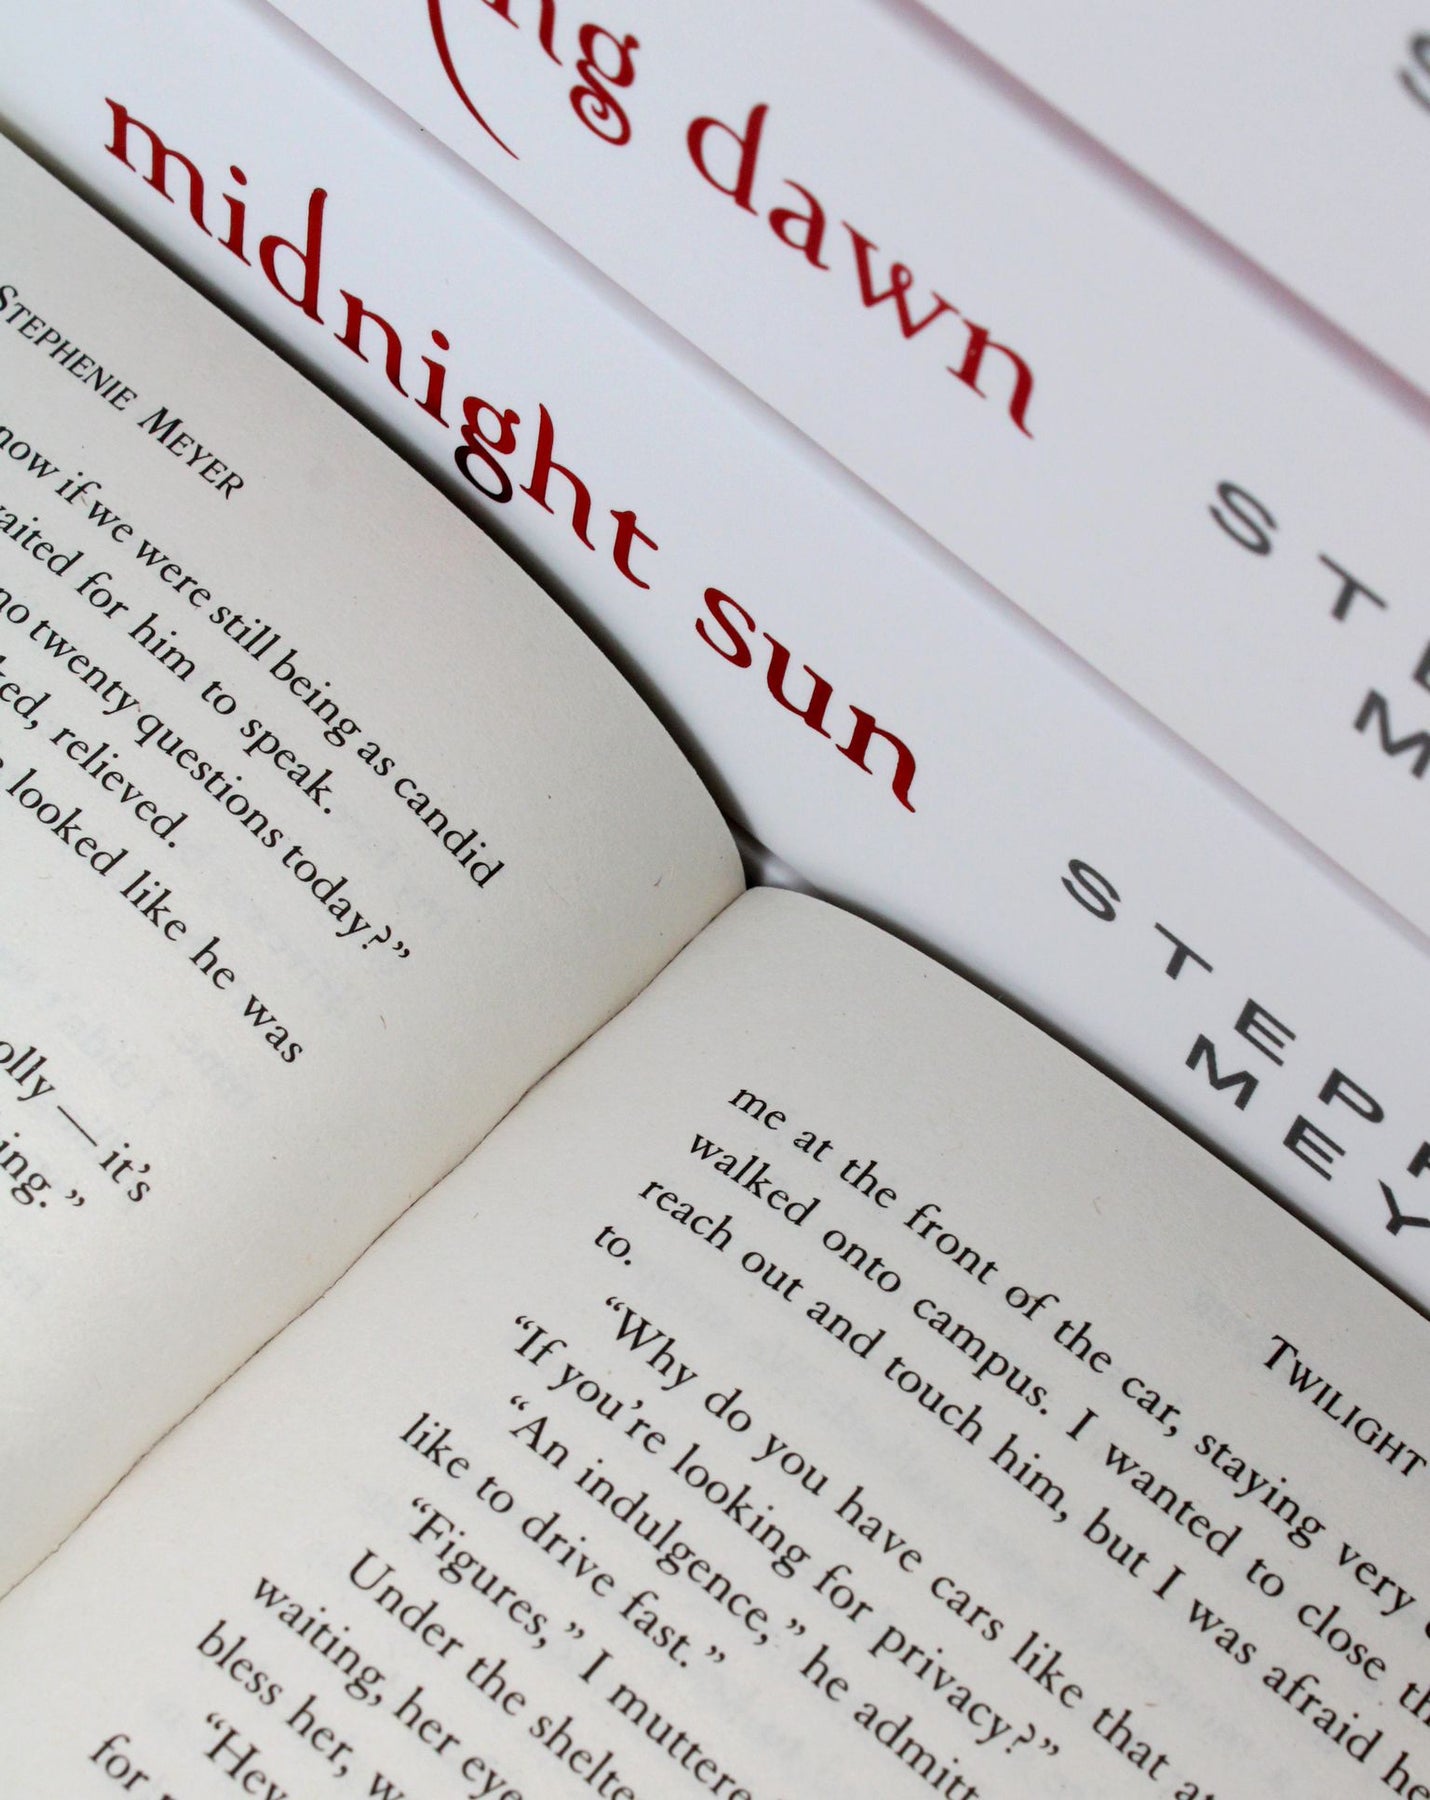 ng dawn
S
STE
M
midnight sun
STEPH
MEY
STEPHENIE MEYER
now if we were still being as candid
waited for him to speak.
no twenty questions today?”
relieved.
looked like he was
— it’s
TWILIGHT
me at the front of the car, staying very
walked onto campus. I wanted to close
reach out and touch him, but I was afraid he
to.
“Why do you have cars like that
“If you’re looking for privacy?”
“An indulgence,” he admitt
like to drive fast.”
“Figures,” I muttere
Under the shelte
waiting, her eye
bless her, w
“Hey
for